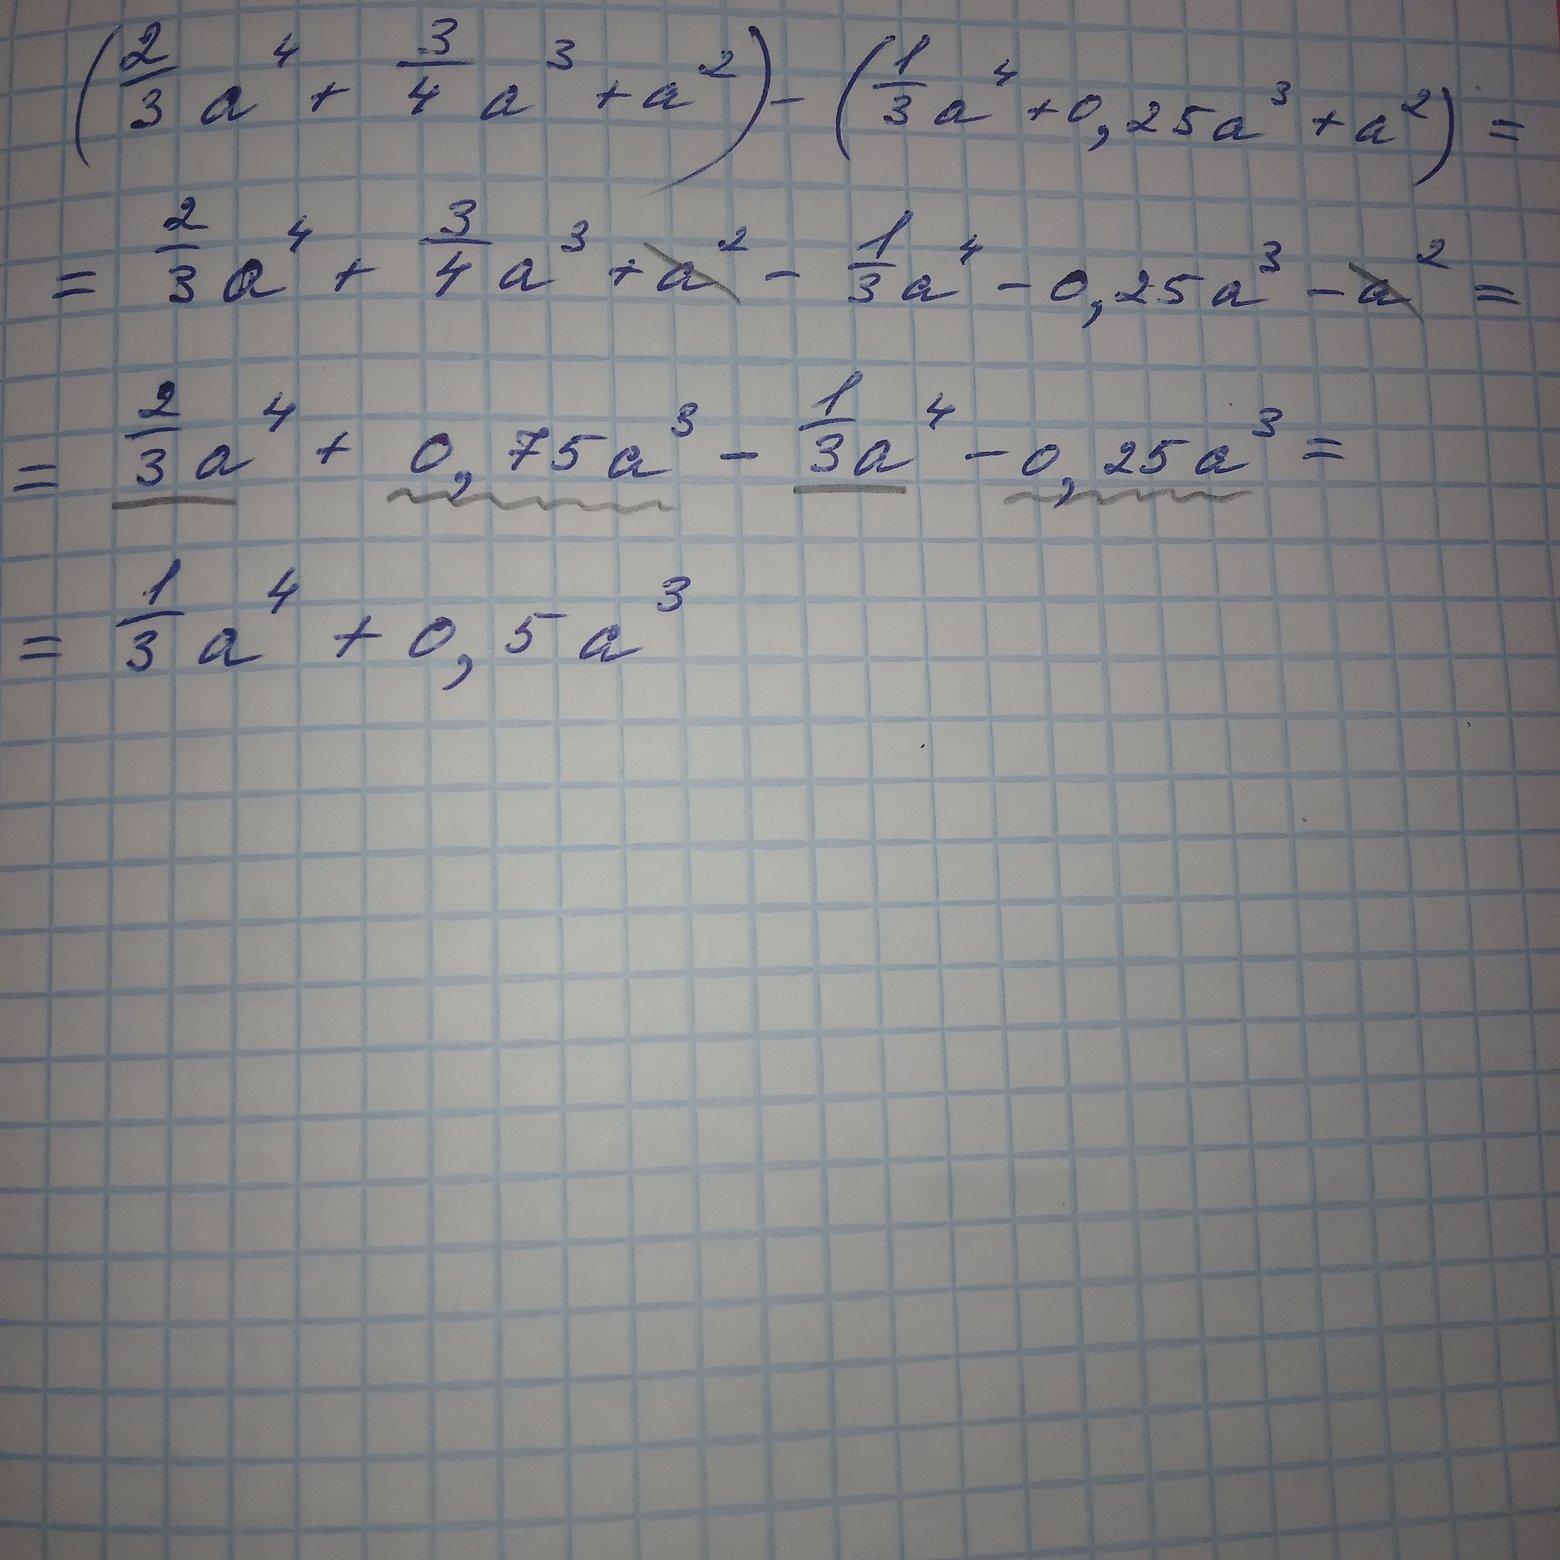 (2/3 a⁴ + 3/4 a³ + a²) - (1/3 a⁴ + 0,25a³ + a²) =
= 2/3 a⁴ + 3/4 a³ + a² - 1/3 a⁴ - 0,25a³ - a² =
= 2/3 a⁴ + 0,75a³ - 1/3 a⁴ - 0,25a³ =
= 1/3 a⁴ + 0,5a³